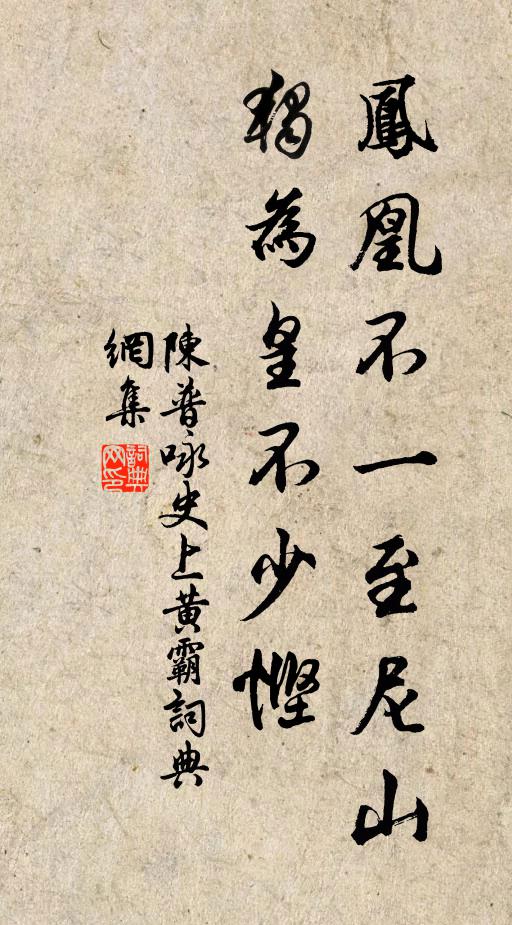 鳳凰不一至尼山
獨為皇不少慳
陳普咏史上黃霸詞典
網集
詞典網印